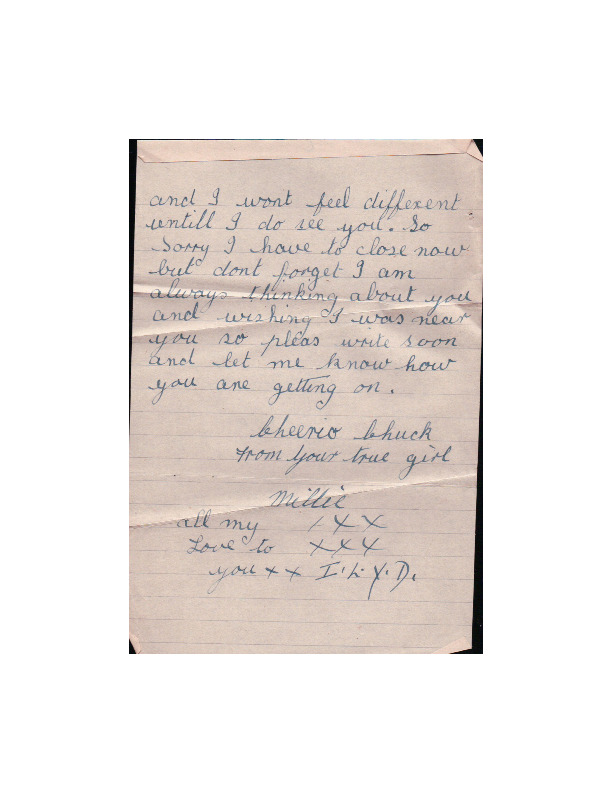 and I wont feel different
untill I do see you. So
Sorry I have to close now
but dont forget I am
always thinking about you
and wishing I was near
you so pleas write soon
and let me know how
you are getting on.
Cheerio Chuck
From Your true girl
Millie
all my x x x
Love to x x x
you x x I.L.Y.D.